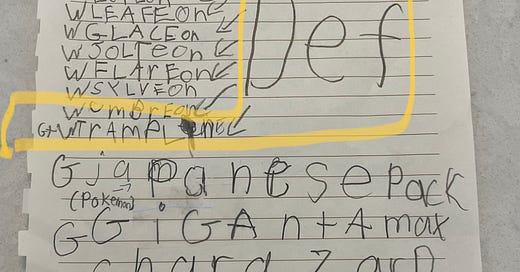 WLEAFEOn
WGLACEon
WJOLTeon
WFLAreon
WSYLVEon
WUmBrEon
G+WTrAmPLinE
Def
G japanese Pack
(Pokemon)
G GiGAntAmax
chard zard